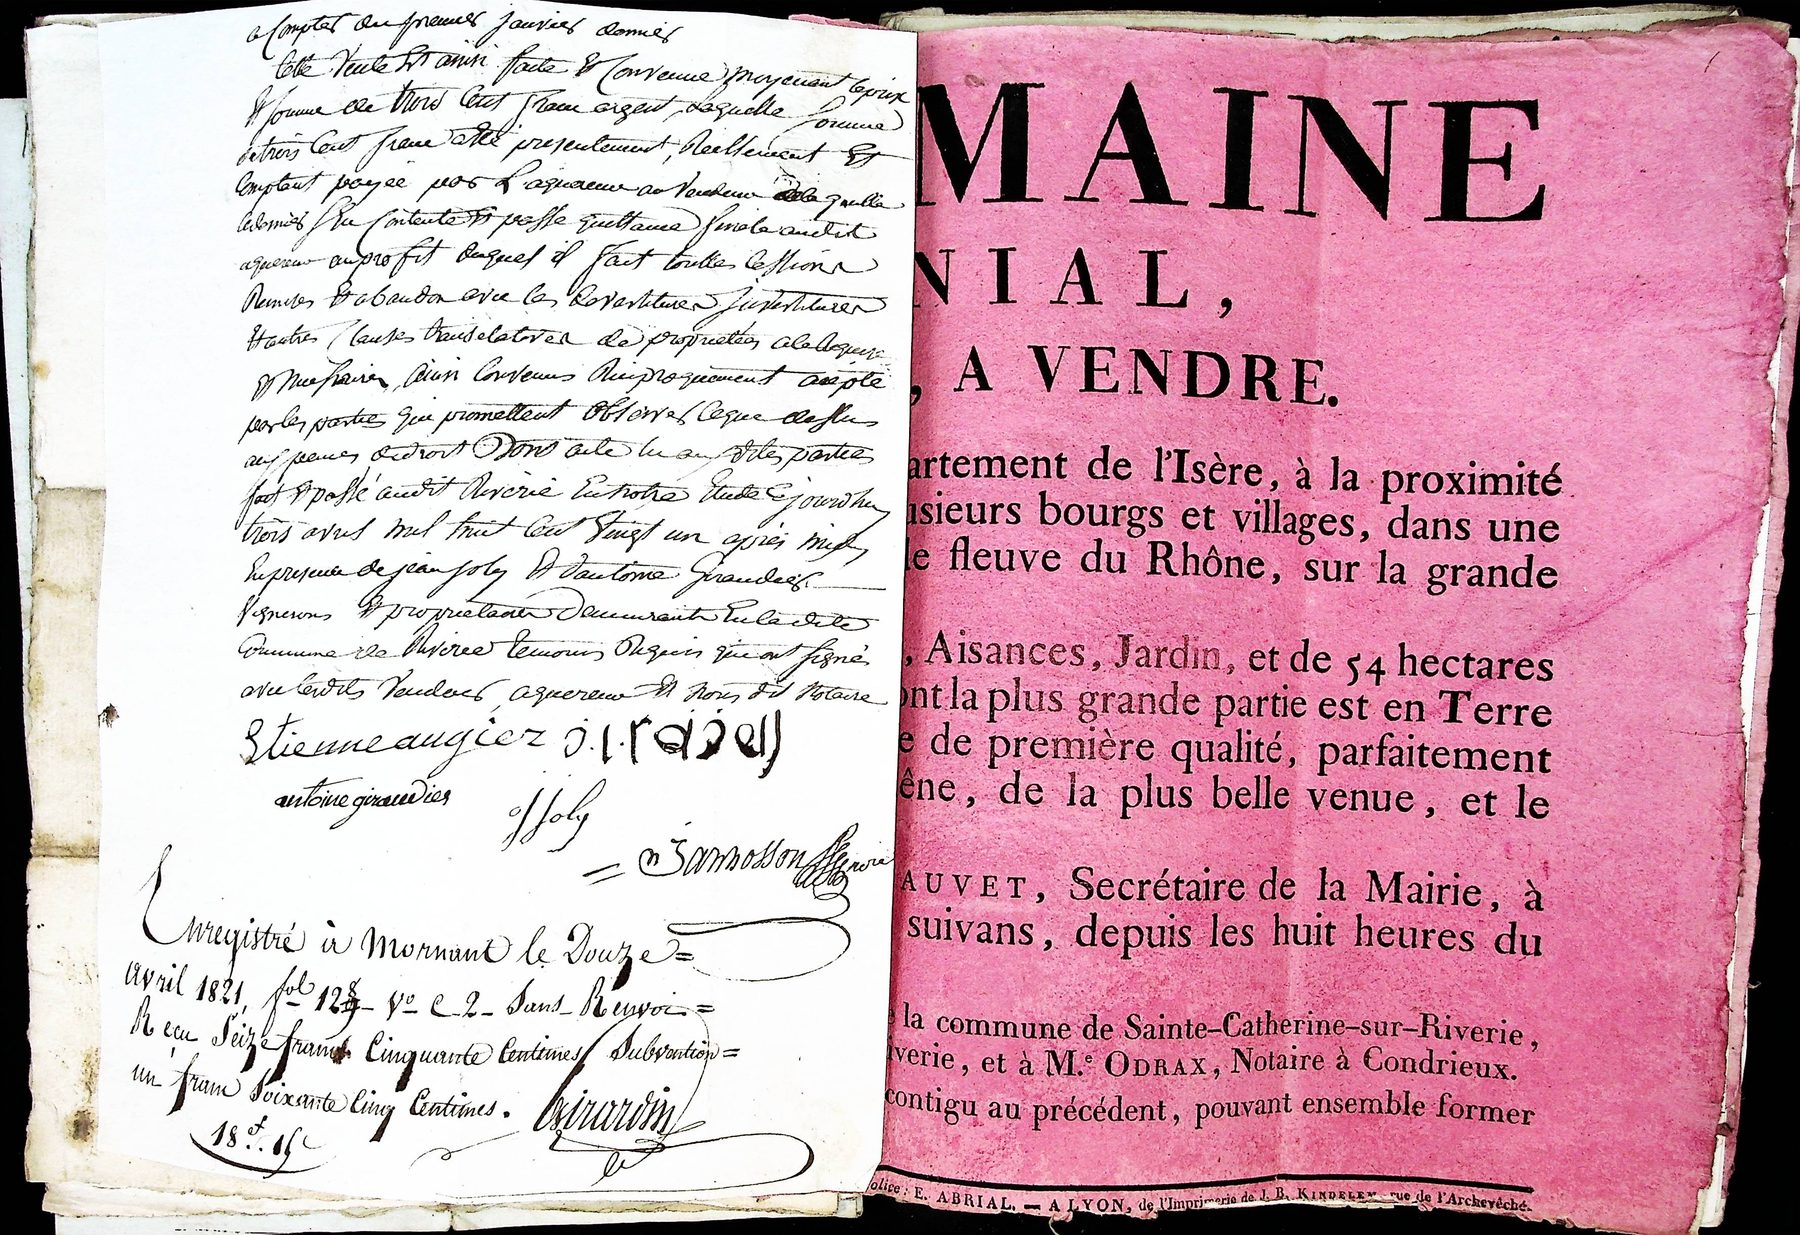 a Compter du premier janvier dernier
Cette Vente Est ainsi faite Et Convenue moyenant le prix
Et somme de trois Cent franc argent, laquelle somme
de trois Cent franc a Eté présentement, Réellement Et
Comptant payée par L'aquereur au Vendeur de la qu'elle
ce dernier s'En Contente Et passe quittance finale audit
aquereur au profit duquel il fait touttes Cessions
Remises Et abandon avec les devestitures investitures
Et autres Clauses translatives de propriétées
Et nécessaires, ainsi Convenus Réciproquement accepté
par les parties qui promettent Observer Ce que dessus
aux peines de droit Dont acte lu aux dites parties
fait Et passé audit Riverie En notre Etude Cejourdhuy
trois avril mil huit Cent Vingt un après midy
En presence de jean joly Et d'antoine Giraudier
Vignerons Et propriétaires Demeurants En la dite
Commune de Riverie temoins Requis qui ont signés
avec lesdits Vendeur, aquereur Et Nous dit Notaire
Etienne augier
antoine giraudier
j joly
Enregistré à Mornant le Douze =
avril 1821, fol. 128 Vo C 2 - Sans Renvoi =
Reçu Seize francs Cinquante Centimes, Subvention =
un franc Soixante Cinq Centimes. Girardin
18 f. 15 c
MAINE
NIAL,
, A VENDRE.
artement de l'Isère, à la proximité
usieurs bourgs et villages, dans une
le fleuve du Rhône, sur la grande
, Aisances, Jardin, et de 54 hectares
ont la plus grande partie est en Terre
e de première qualité, parfaitement
êne, de la plus belle venue, et le
AUVET, Secrétaire de la Mairie, à
suivans, depuis les huit heures du
e la commune de Sainte-Catherine-sur-Riverie,
verie, et à M.e ODRAX, Notaire à Condrieux.
contigu au précédent, pouvant ensemble former
olice: E. ABRIAL. — A LYON, de l'Imprimerie de J. B. KINDELEM, rue de l'Archevêché.